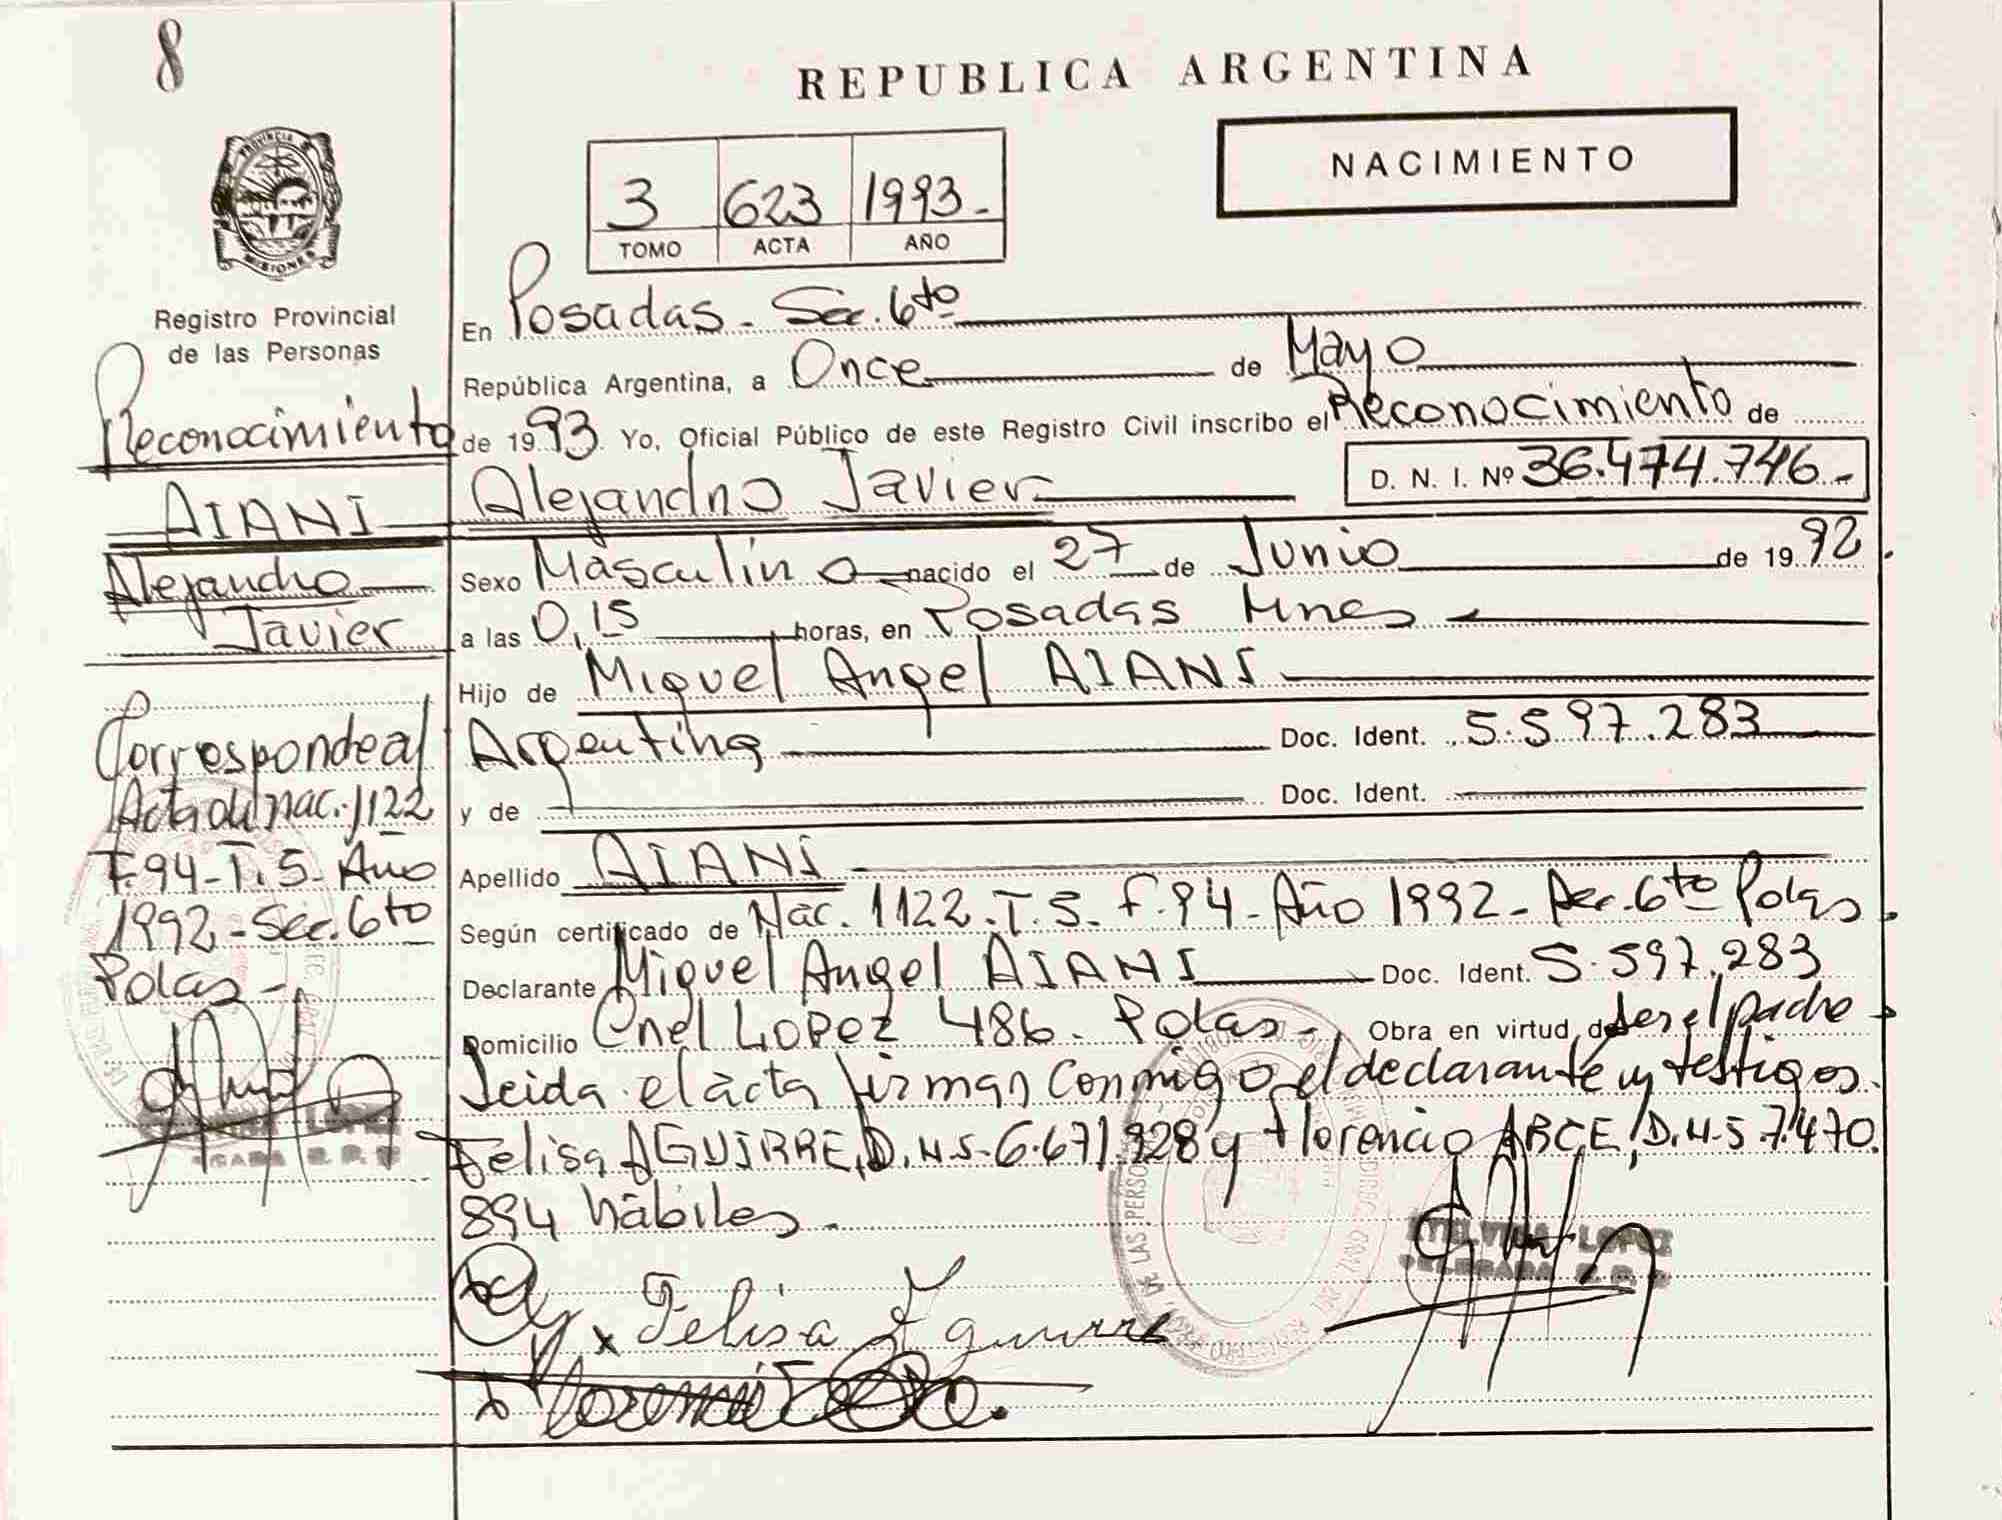 8
REPUBLICA ARGENTINA
NACIMIENTO
3 623 1993.-
TOMO ACTA AÑO
PROVINCIA
MISIONES
Registro Provincial
de las Personas
Reconocimiento
AIANI
Alejandro
Javier
Corresponde al
Acta de nac. 1122
F.94-T.5-Año
1992-Sec.6to
Pdas-
En Posadas - Sec. 6to
República Argentina, a Once de Mayo
de 1993 Yo, Oficial Público de este Registro Civil inscribo el Reconocimiento de
Alejandro Javier D. N. I. Nº 36.474.746.-
Sexo Masculino nacido el 27 de Junio de 1992.
a las 0,15 horas, en Posadas Mnes
Hijo de Miguel Angel AIANI
Argentina Doc. Ident. 5.597.283
y de Doc. Ident.
Apellido AIANI
Según certificado de Nac. 1122-T.5-F.94-Año 1992- Sec.6to Pdas.
Declarante Miguel Angel AIANI Doc. Ident. 5.597.283
Domicilio Cnel Lopez 486. Pdas.- Obra en virtud de ser el padre
Leida el acta firman conmigo el declarante y testigos.
Felisa AGUIRRE, D.N.I. 6.671.928 y Florencio ARCE, D.N.I. 7.470.
894 hábiles.-
x Felisa Aguirre
x
ETELVINA LOPEZ
DELEGADA R. P.